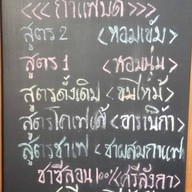 <<< กาแฟบด >>>
สูตร 2 <หอมเข้ม>
สูตร 1 <หอมนุ่ม>
สูตรดั้งเดิม <ขมไหม้>
สูตรโคเฟค์ <อาราบิก้า>
สูตรชาเฟ <ชาผสมกาแฟ>
ชาซีลอน 100% <ศรีลังกา>